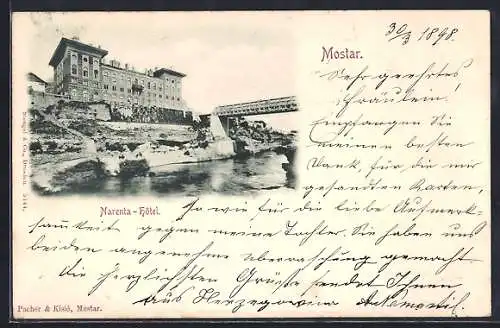 30/3 1898.
Mostar.
Sehr geehrtes
Fräulein!
Empfangen Sie
meinen besten
Dank, für die mir
gesandten Karten,
Narenta-Hôtel.
so wie für die liebe Aufmerk-
samkeit gegen meine Tochter. Sie haben uns
beiden angenehme Überraschung gemacht.
Die herzlichsten Grüsse sendet Ihnen
Aus Herzegovina
Pacher & Kisić, Mostar.
Stengel & Co., Dresden.